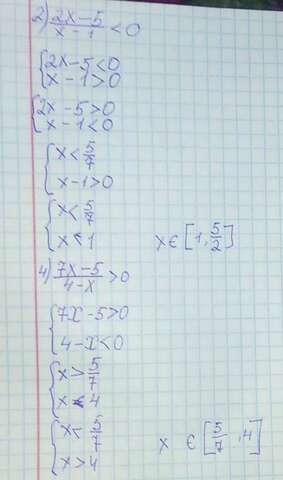 2) \frac{2x-5}{x-1}<0
{2x-5<0
{x-1>0
{2x-5>0
{x-1<0
{x<\frac{5}{7}
{x-1>0
{x<\frac{5}{7}
{x<1 x∈[1,\frac{5}{2}]
4) \frac{7x-5}{4-x}>0
{7x-5>0
{4-x<0
{x>\frac{5}{7}
{x<4
{x<\frac{5}{7}
{x>4 x ∈ [\frac{5}{7},4]